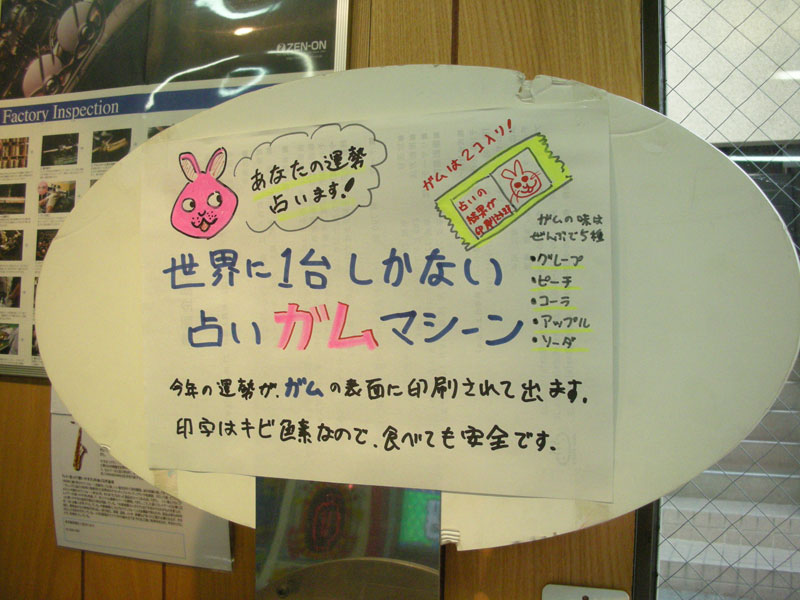 ZEN-ON
Factory Inspection
あなたの運勢
占います!
ガムは2コ入り!
占いの
結果が
印刷されます
ガムの味は
ぜんぶで5種
・グレープ
・ピーチ
・コーラ
・アップル
・ソーダ
世界に1台しかない
占いガムマシーン
今年の運勢が、ガムの表面に印刷されて出ます。
印字はキビ色素なので、食べても安全です。